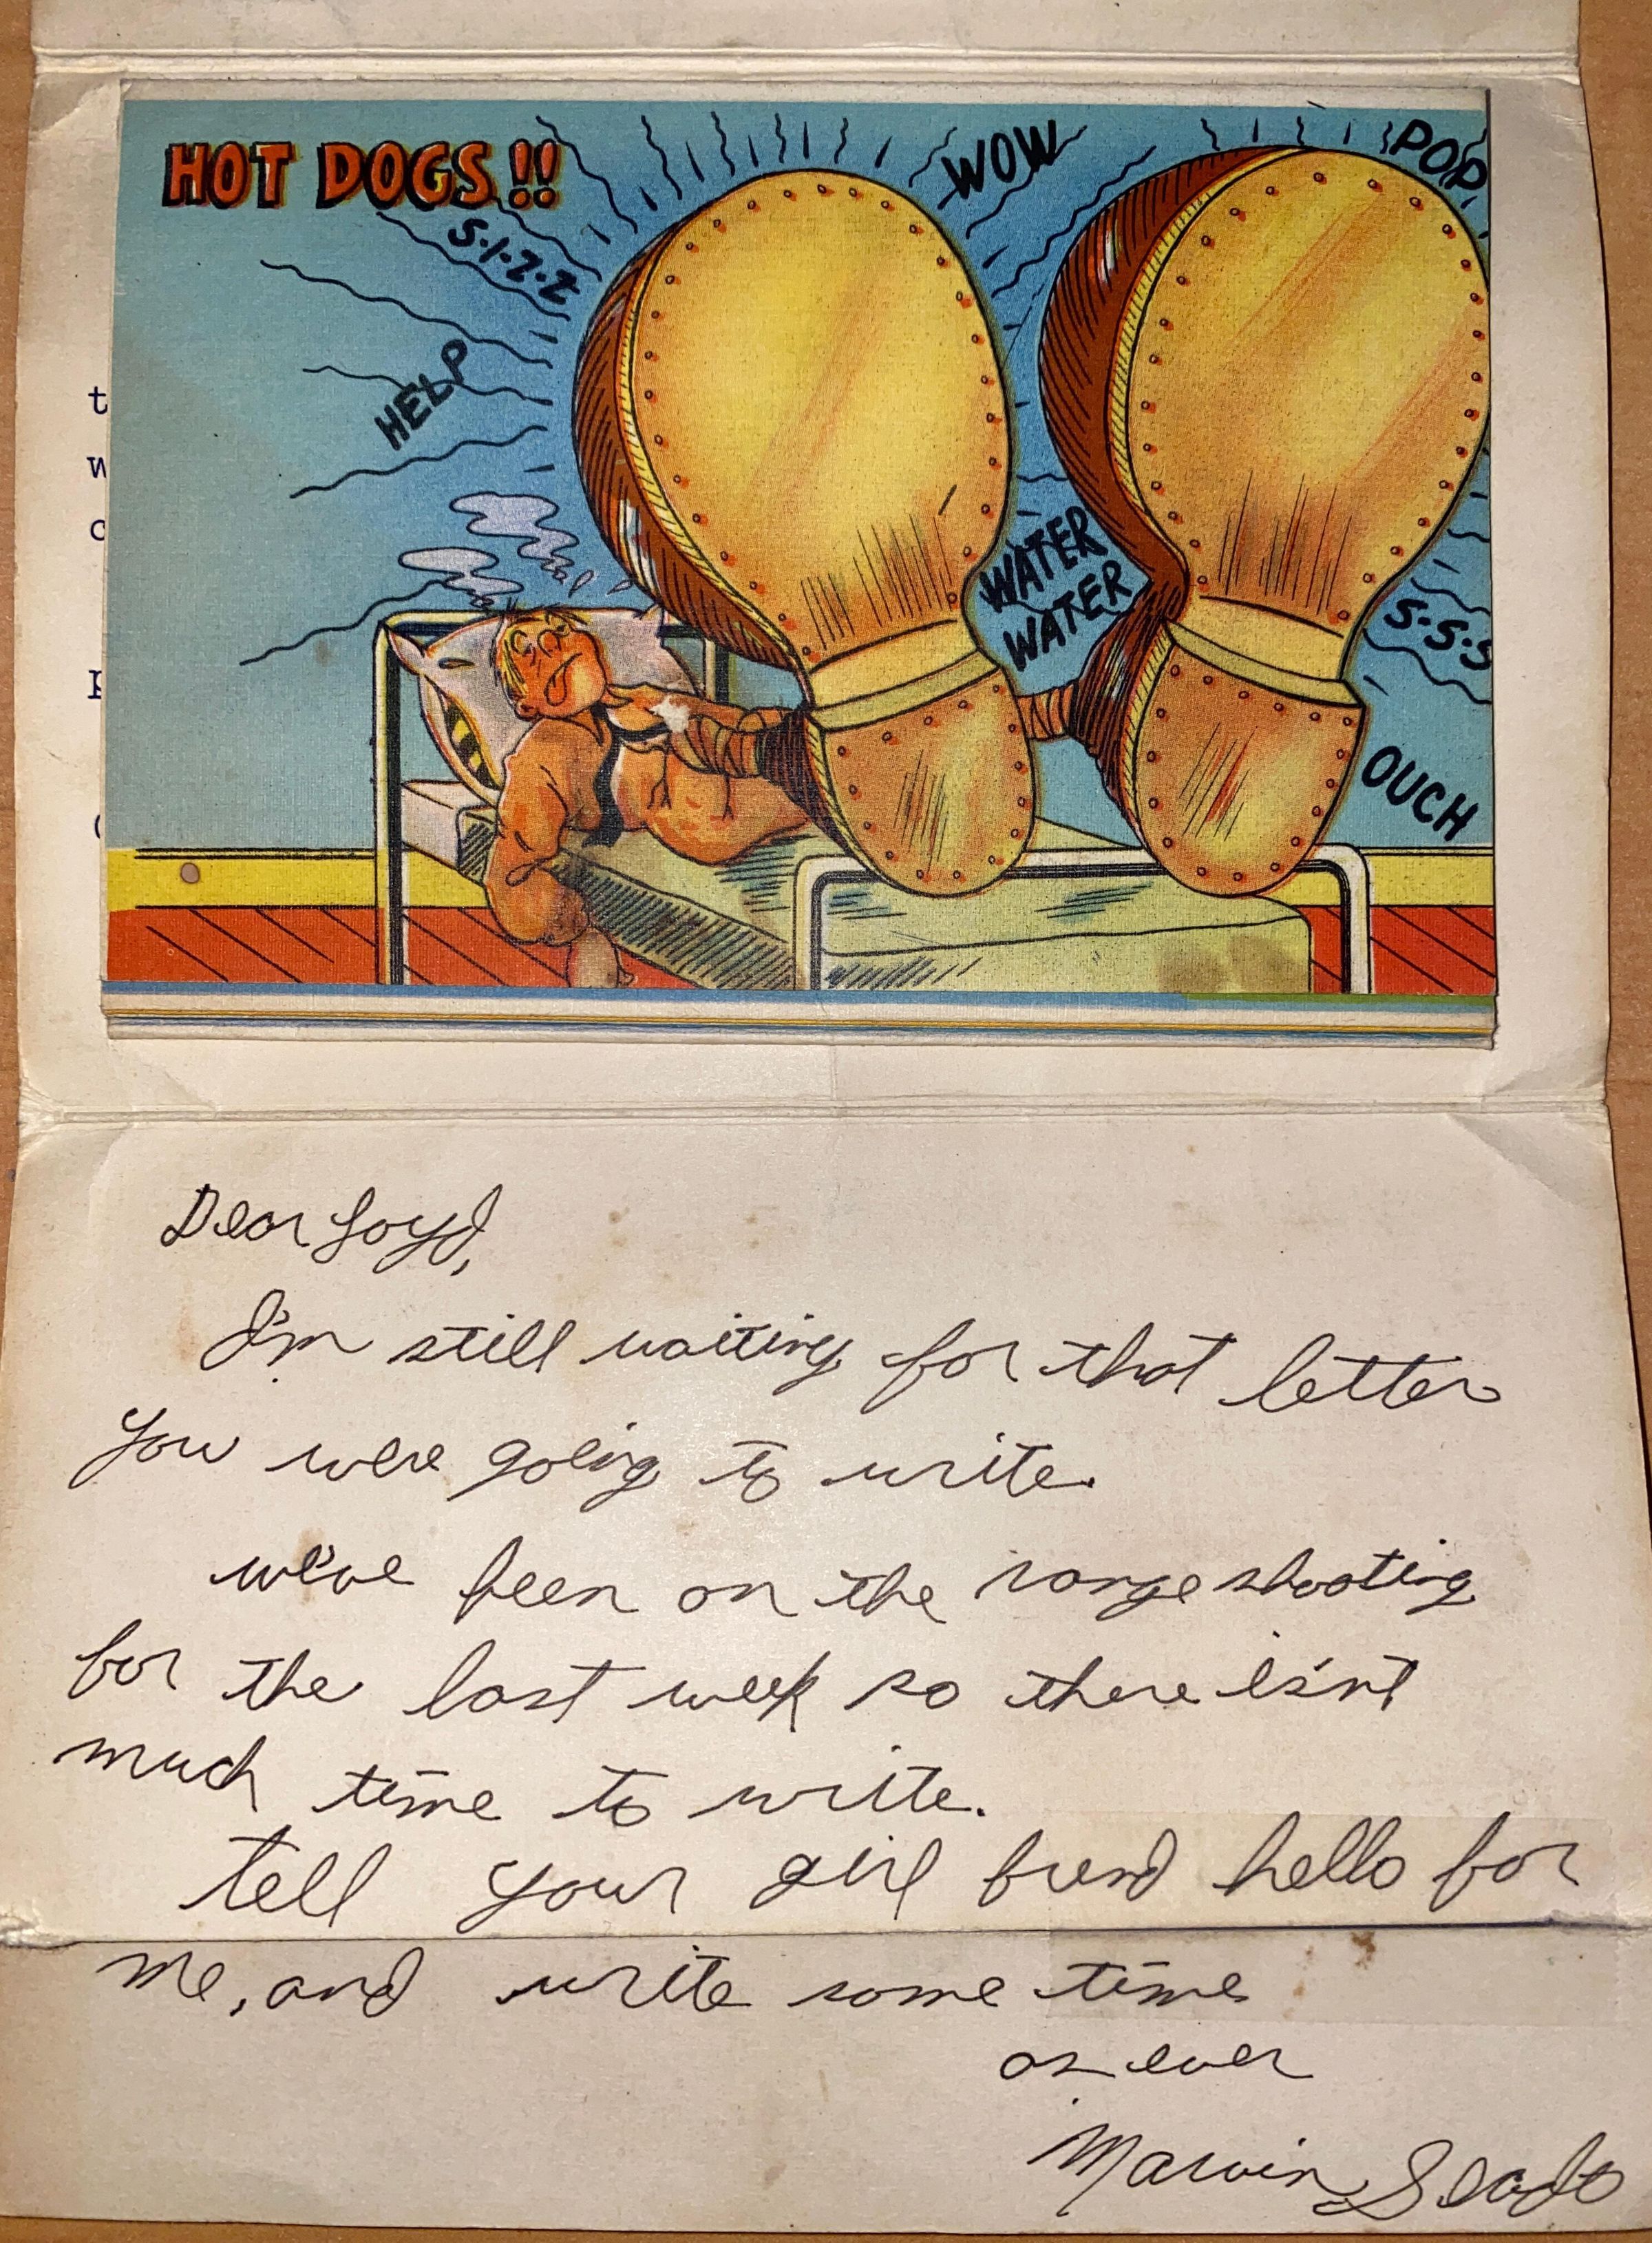 HOT DOGS!!
WOW
POP
S·I·Z·Z
HELP
WATER
WATER
S·S·S
OUCH
t
w
c
Dear Loyd,
I'm still waiting for that letter
you were going to write.
we've been on the range shooting
for the last week so there is'nt
much time to write.
tell your girl frend hello for
me, and write some time
as ever
Marvin